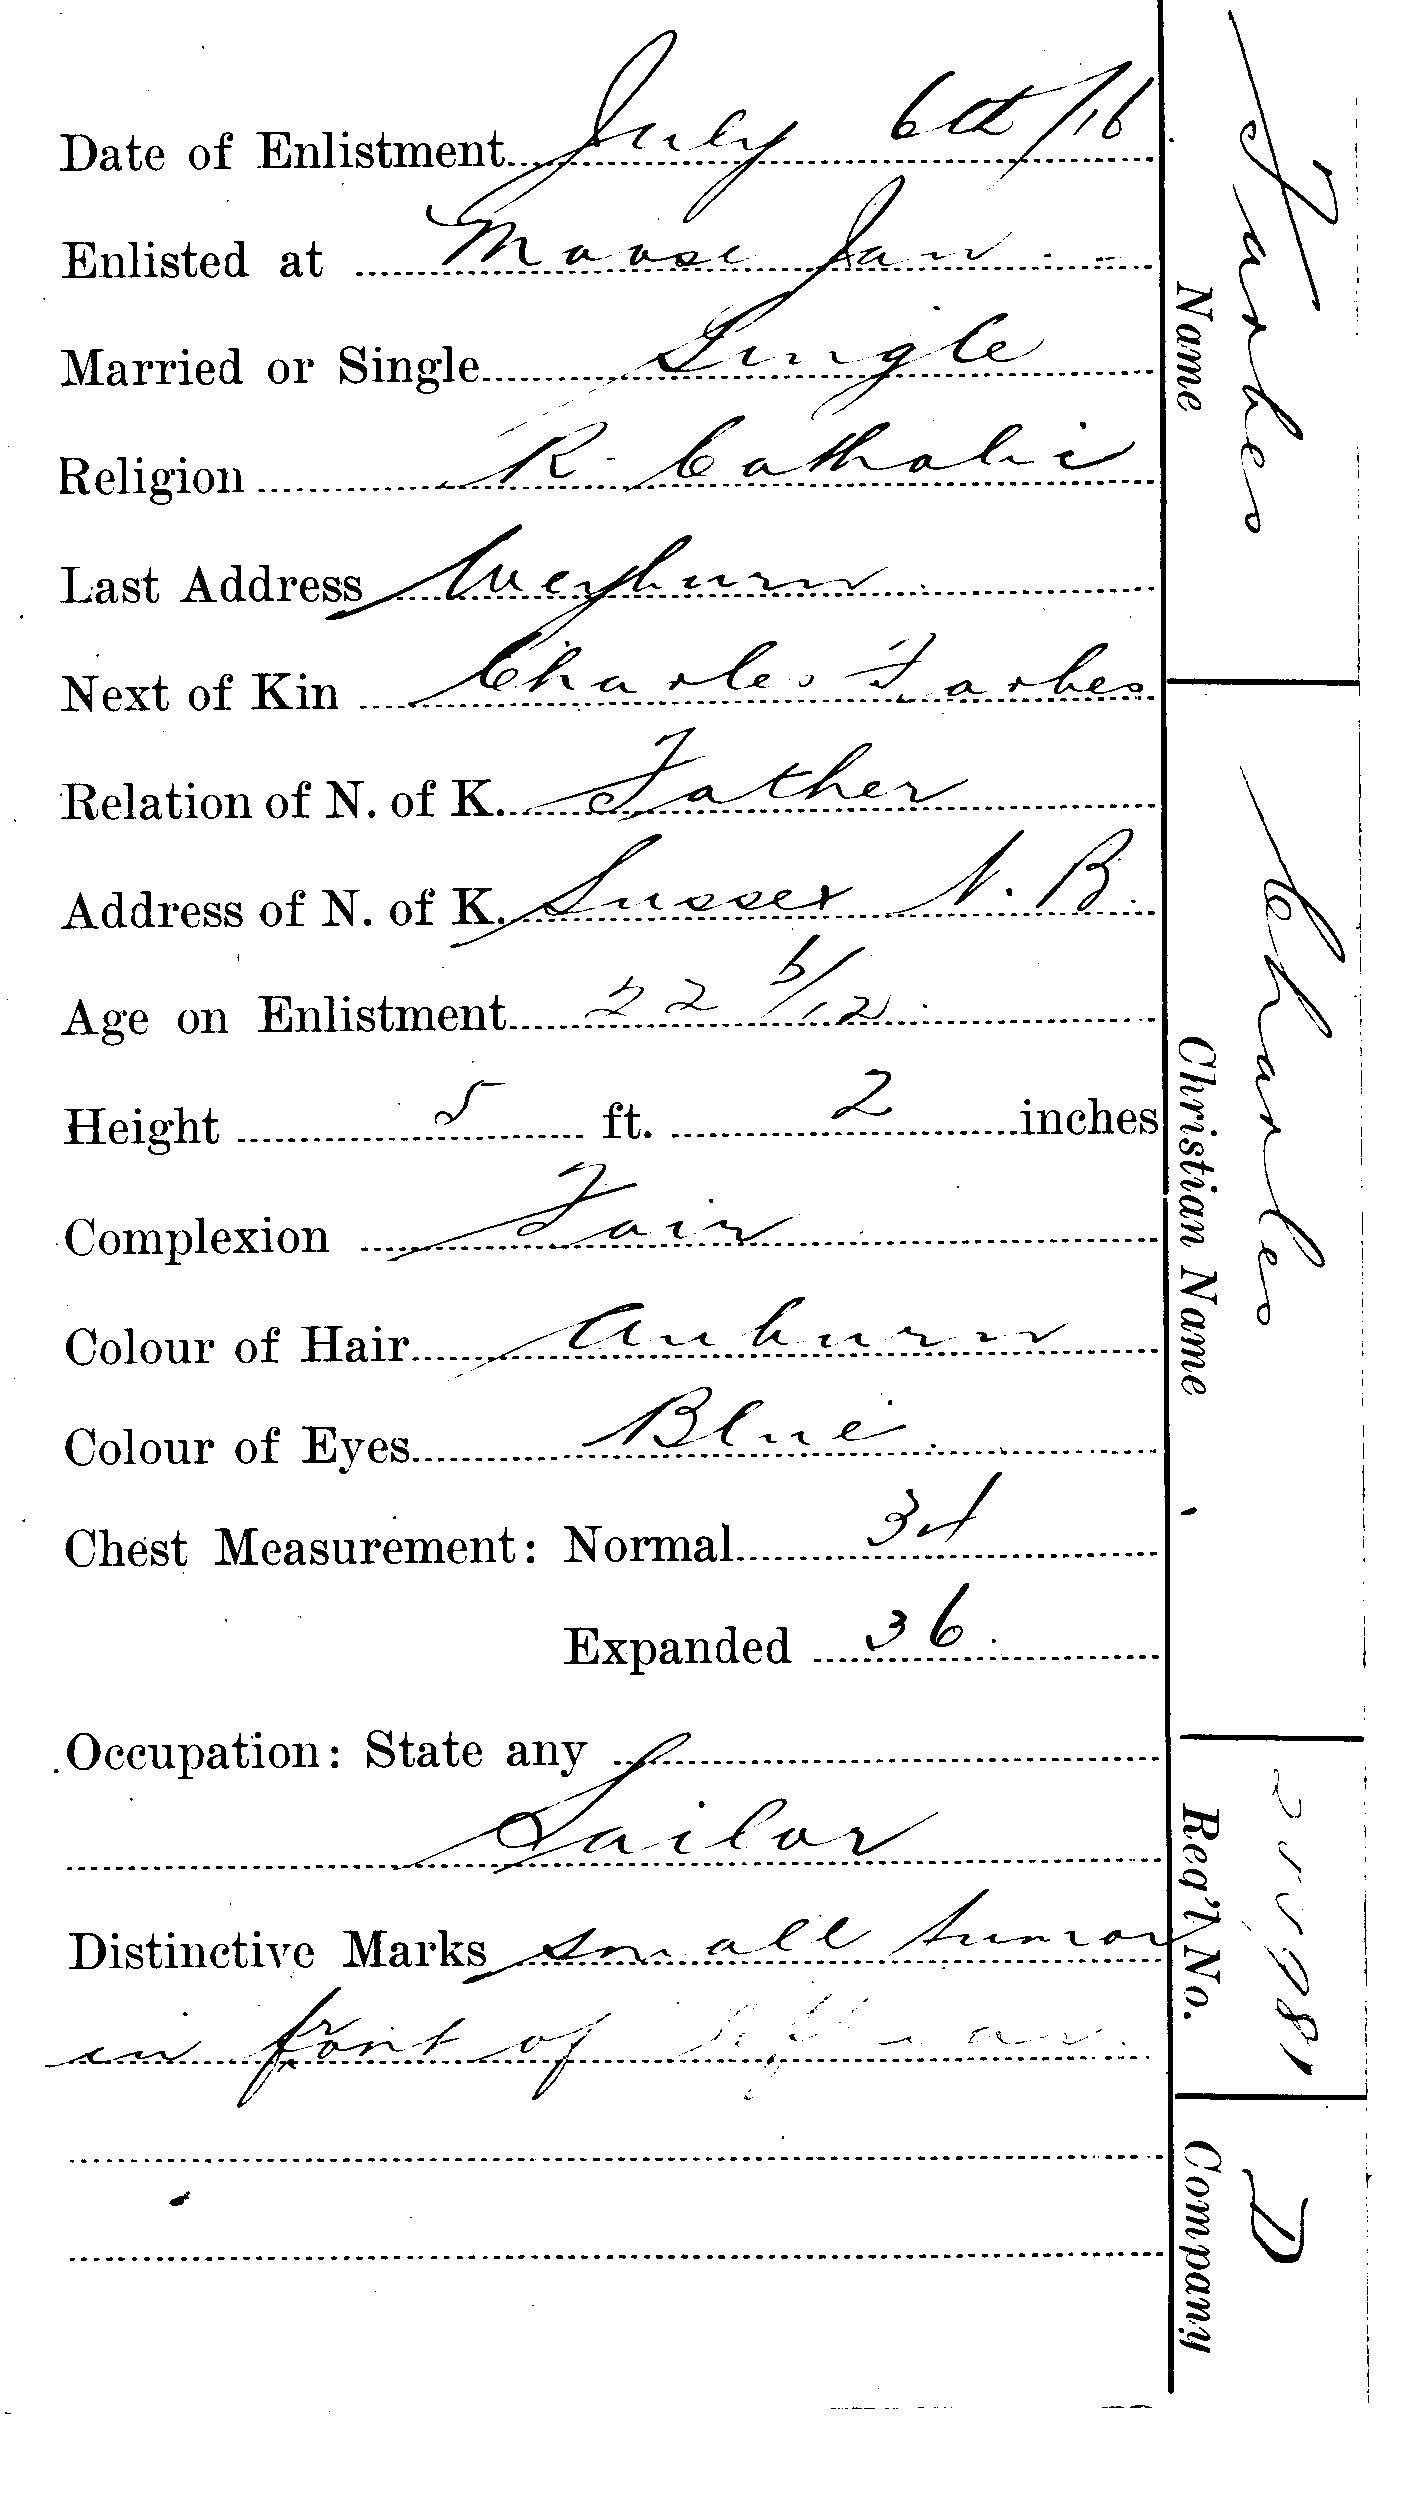 Date of Enlistment July 6th/16
Enlisted at Moose Jaw
Married or Single Single
Religion R. Catholic
Last Address Weyburn
Next of Kin Charles Forbes
Relation of N. of K. Father
Address of N. of K. Sussex N. B.
Age on Enlistment 22 6/12
Height 5 ft. 2 inches
Complexion Fair
Colour of Hair Auburn
Colour of Eyes Blue
Chest Measurement: Normal 34
Expanded 36
Occupation: State any
Sailor
Distinctive Marks small tumor
in front of left ear
Name Forbes
Christian Name Charles
Reg'l No.
Company D